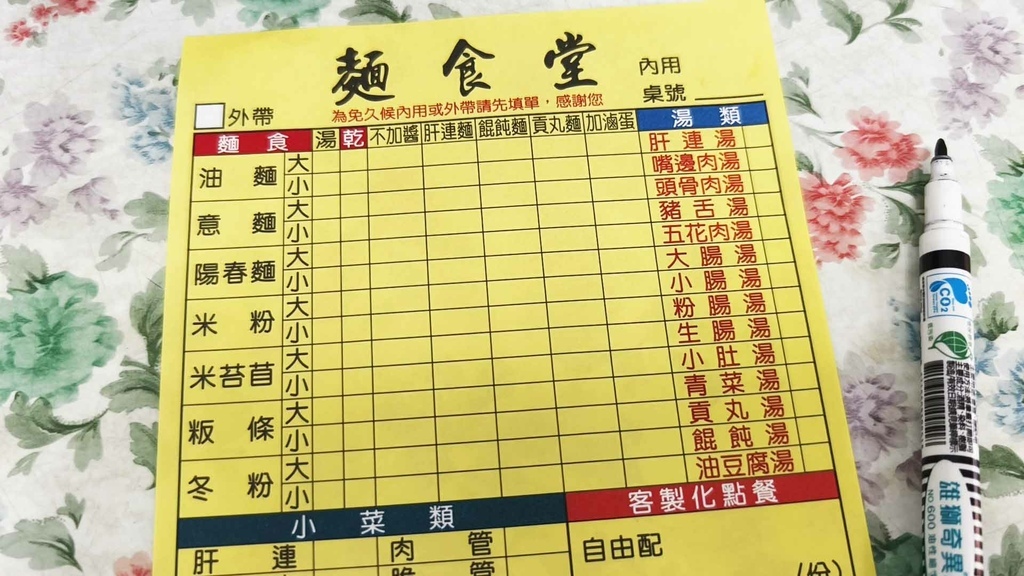 麵食堂
內用
桌號
外帶
為免久候內用或外帶請先填單，感謝您
麵食 湯 乾 不加醬 肝連麵 餛飩麵 貢丸麵 加滷蛋 湯類
油麵 大 小
意麵 大 小
陽春麵 大 小
米粉 大 小
米苔苜 大 小
粄條 大 小
冬粉 大 小
肝連湯
嘴邊肉湯
頭骨肉湯
豬舌湯
五花肉湯
大腸湯
小腸湯
粉腸湯
生腸湯
小肚湯
青菜湯
貢丸湯
餛飩湯
油豆腐湯
小菜類
肝連 肉管
脆管
客製化點餐
自由配
(份)
CO2
雄獅奇異
NO.600